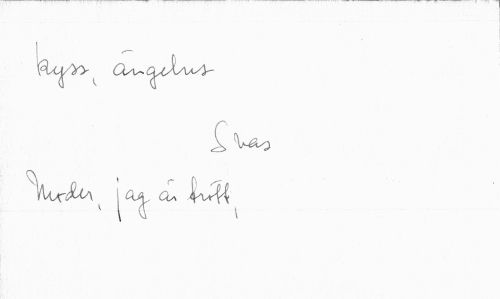 kyss, ängelns
Svas
Moder, jag är trött,